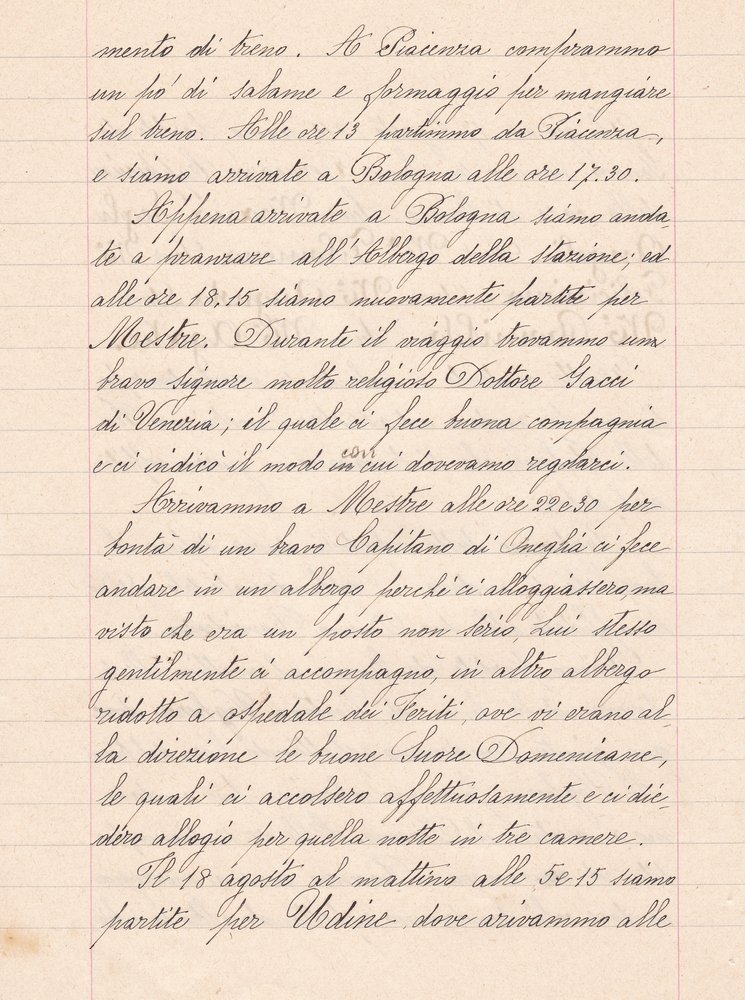 mento di treno. A Piacenza comprammo
un pó di salame e formaggio per mangiare
sul treno. Alle ore 13 partimmo da Piacenza,
e siamo arrivate a Bologna alle ore 17.30.
Appena arrivate a Bologna siamo anda-
te a pranzare all'Albergo della stazione; ed
alle ore 18,15 siamo nuovamente partite per
Mestre. Durante il viaggio trovammo un
bravo signore molto religioso Dottore Gacci
di Venezia; il quale ci fece buona compagnia
e ci indicò il modo in con cui dovevamo regolarci.
Arrivammo a Mestre alle ore 22 e 30 per
bontà di un bravo Capitano di Oneglia ci fece
andare in un albergo perché ci alloggiassero, ma
visto che era un posto non serio, Lui stesso
gentilmente ci accompagnò, in altro albergo
ridotto a ospedale dei Feriti, ove vi erano al-
la direzione le buone Suore Domenicane,
le quali ci accolsero affettuosamente e ci die-
dero allogio per quella notte in tre camere.
Il 18 agosto al mattino alle 5 e 15 siamo
partite per Udine, dove arivammo alle